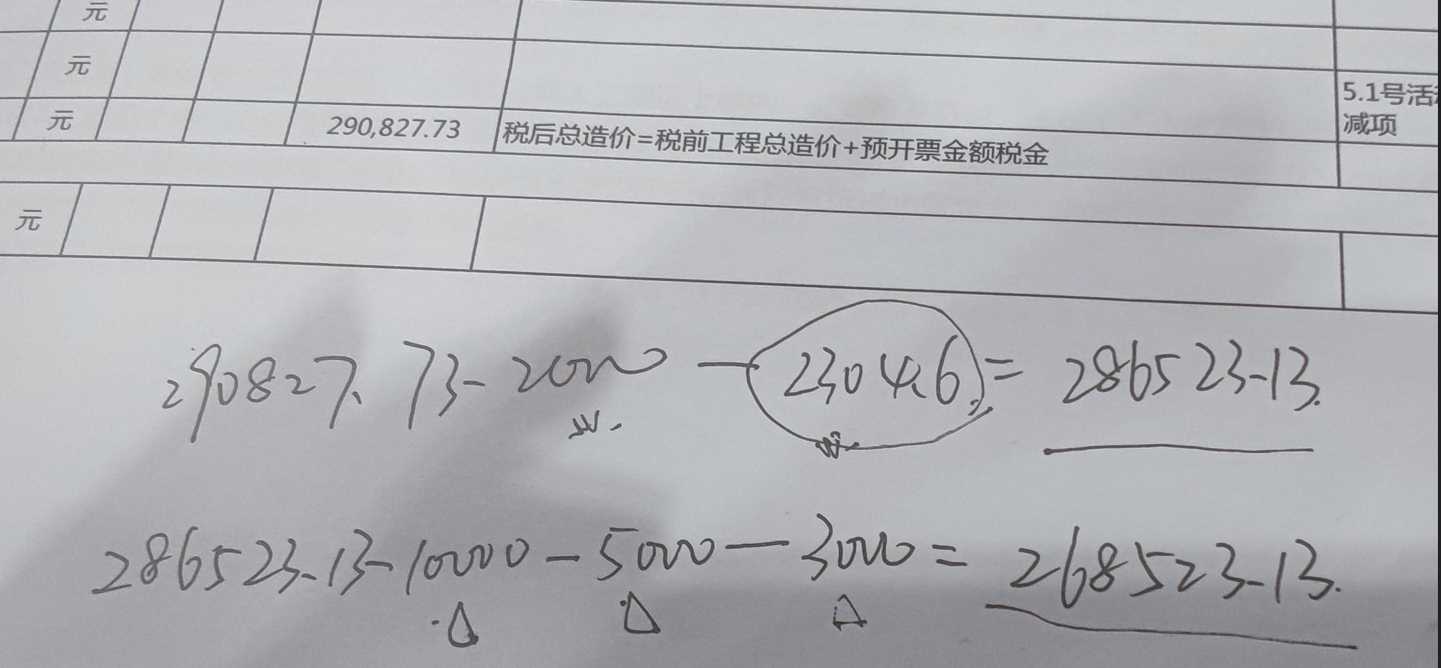 元
元
5.1号活
减项
元 290,827.73 税后总造价=税前工程总造价+预开票金额税金
元
290827.73-2000-2304.6=286523.13.
286523.13-10000-5000-3000=268523.13.